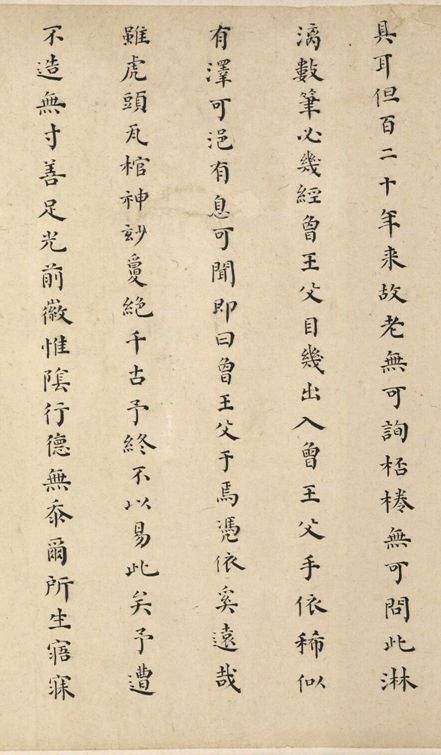 具耳但百二十年来故老無可詢桮棬無可問此淋
漓數筆必幾經曾王父目幾出入曾王父手依稀似
有澤可浥有息可聞即曰曾王父于焉憑依奚遠哉
雖虎頭瓦棺神玅敻絶千古予終不以易此矣予遭
不造無寸善足光前徽惟隂行德無忝爾所生寤寐